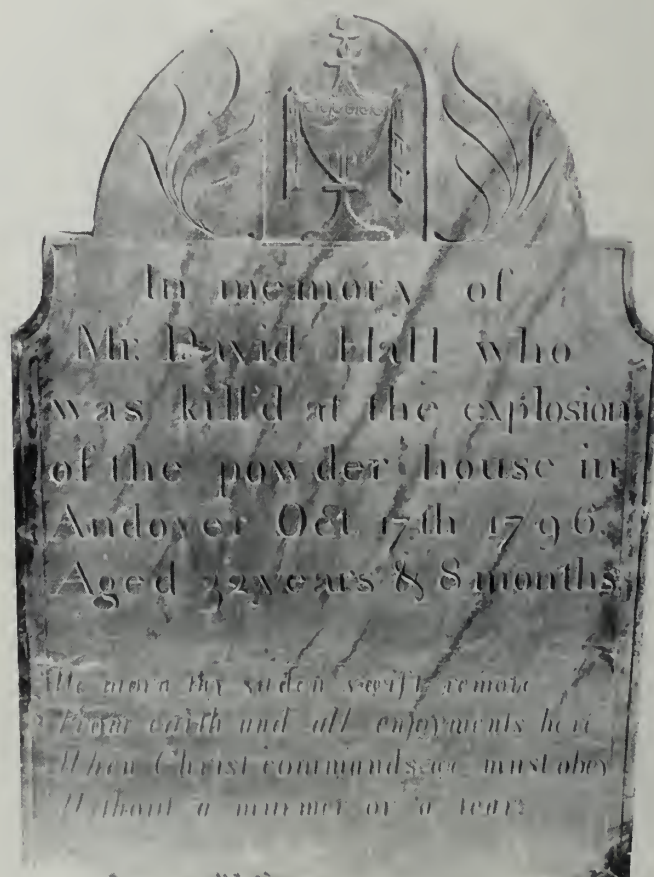 In memory of
Mr. David Hall who
was kill'd at the explosion
of the powder house in
Andover Oct 17th 1796.
Aged 32 years & 8 months
We morn thy suden swift remove
From earth and all enjoyments here
When Christ commands we must obey
Without a murmer or a tear